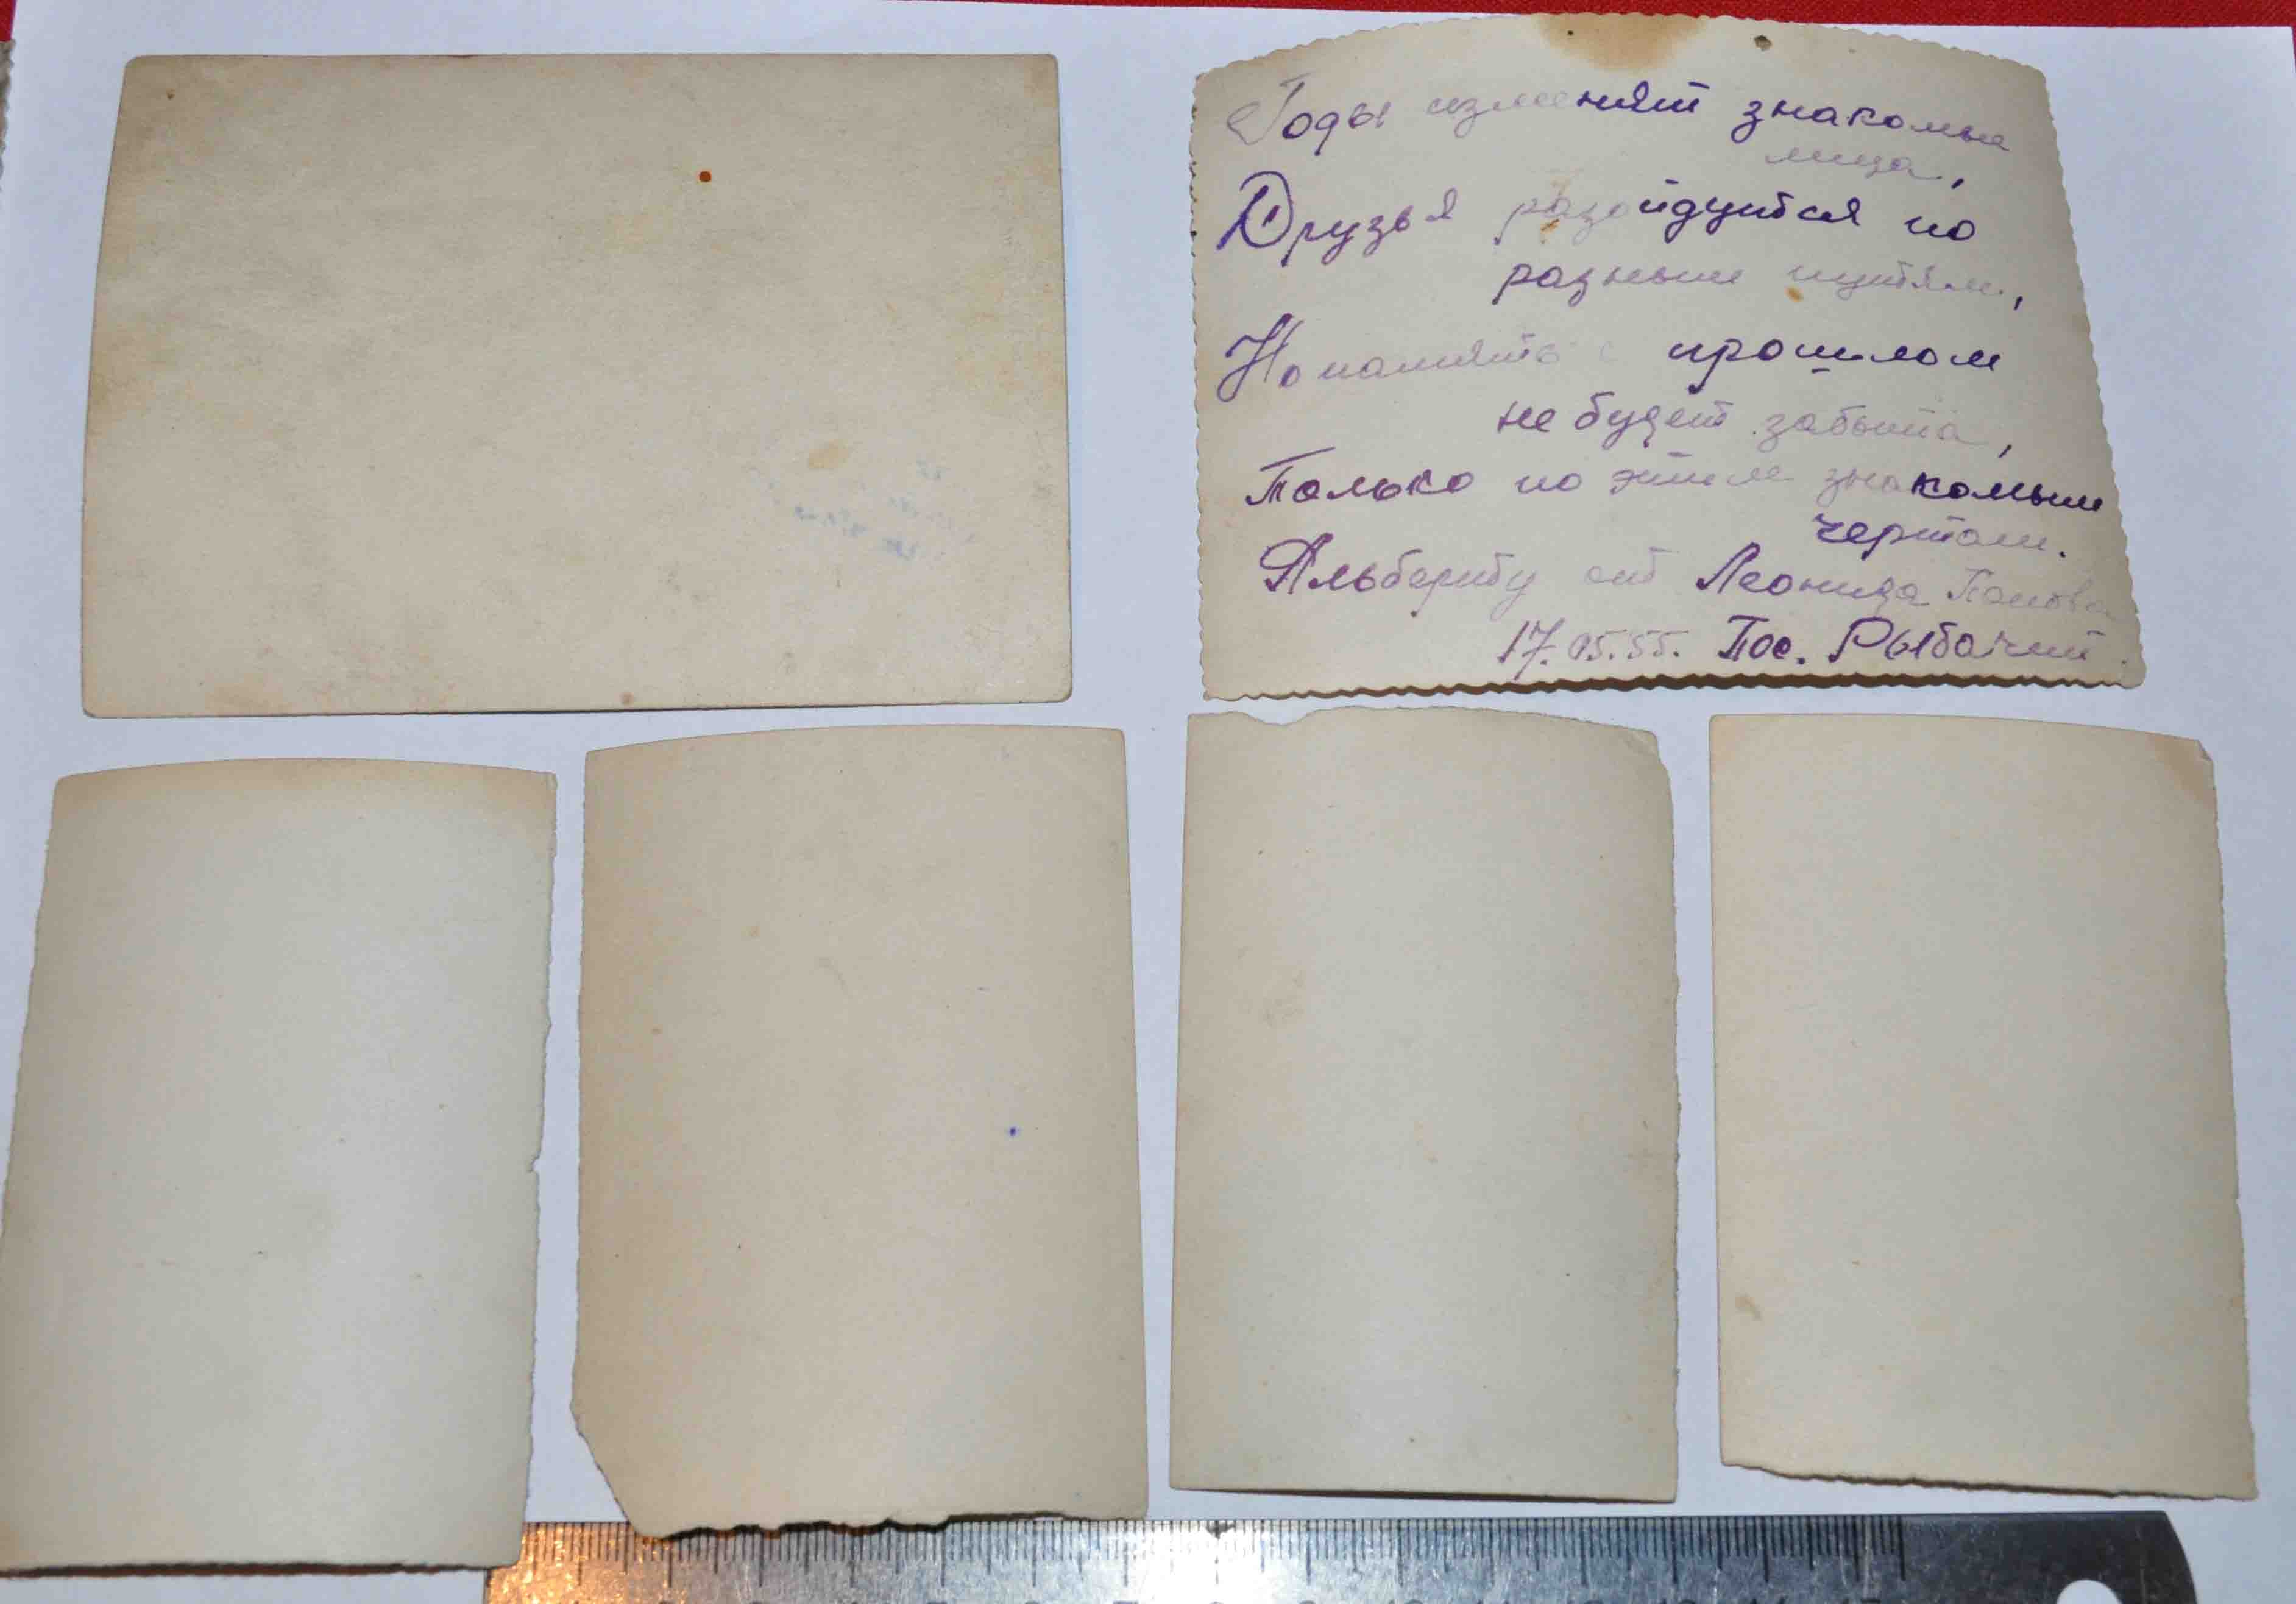 Годы изменят знакомые
лица,
Друзья разойдутся по
разным путям,
Но память о прошлом
не будет забыта,
Только по этим знакомым
чертам.
Альберту от Леонида Попова
17.05.55. Пос. Рыбачий.